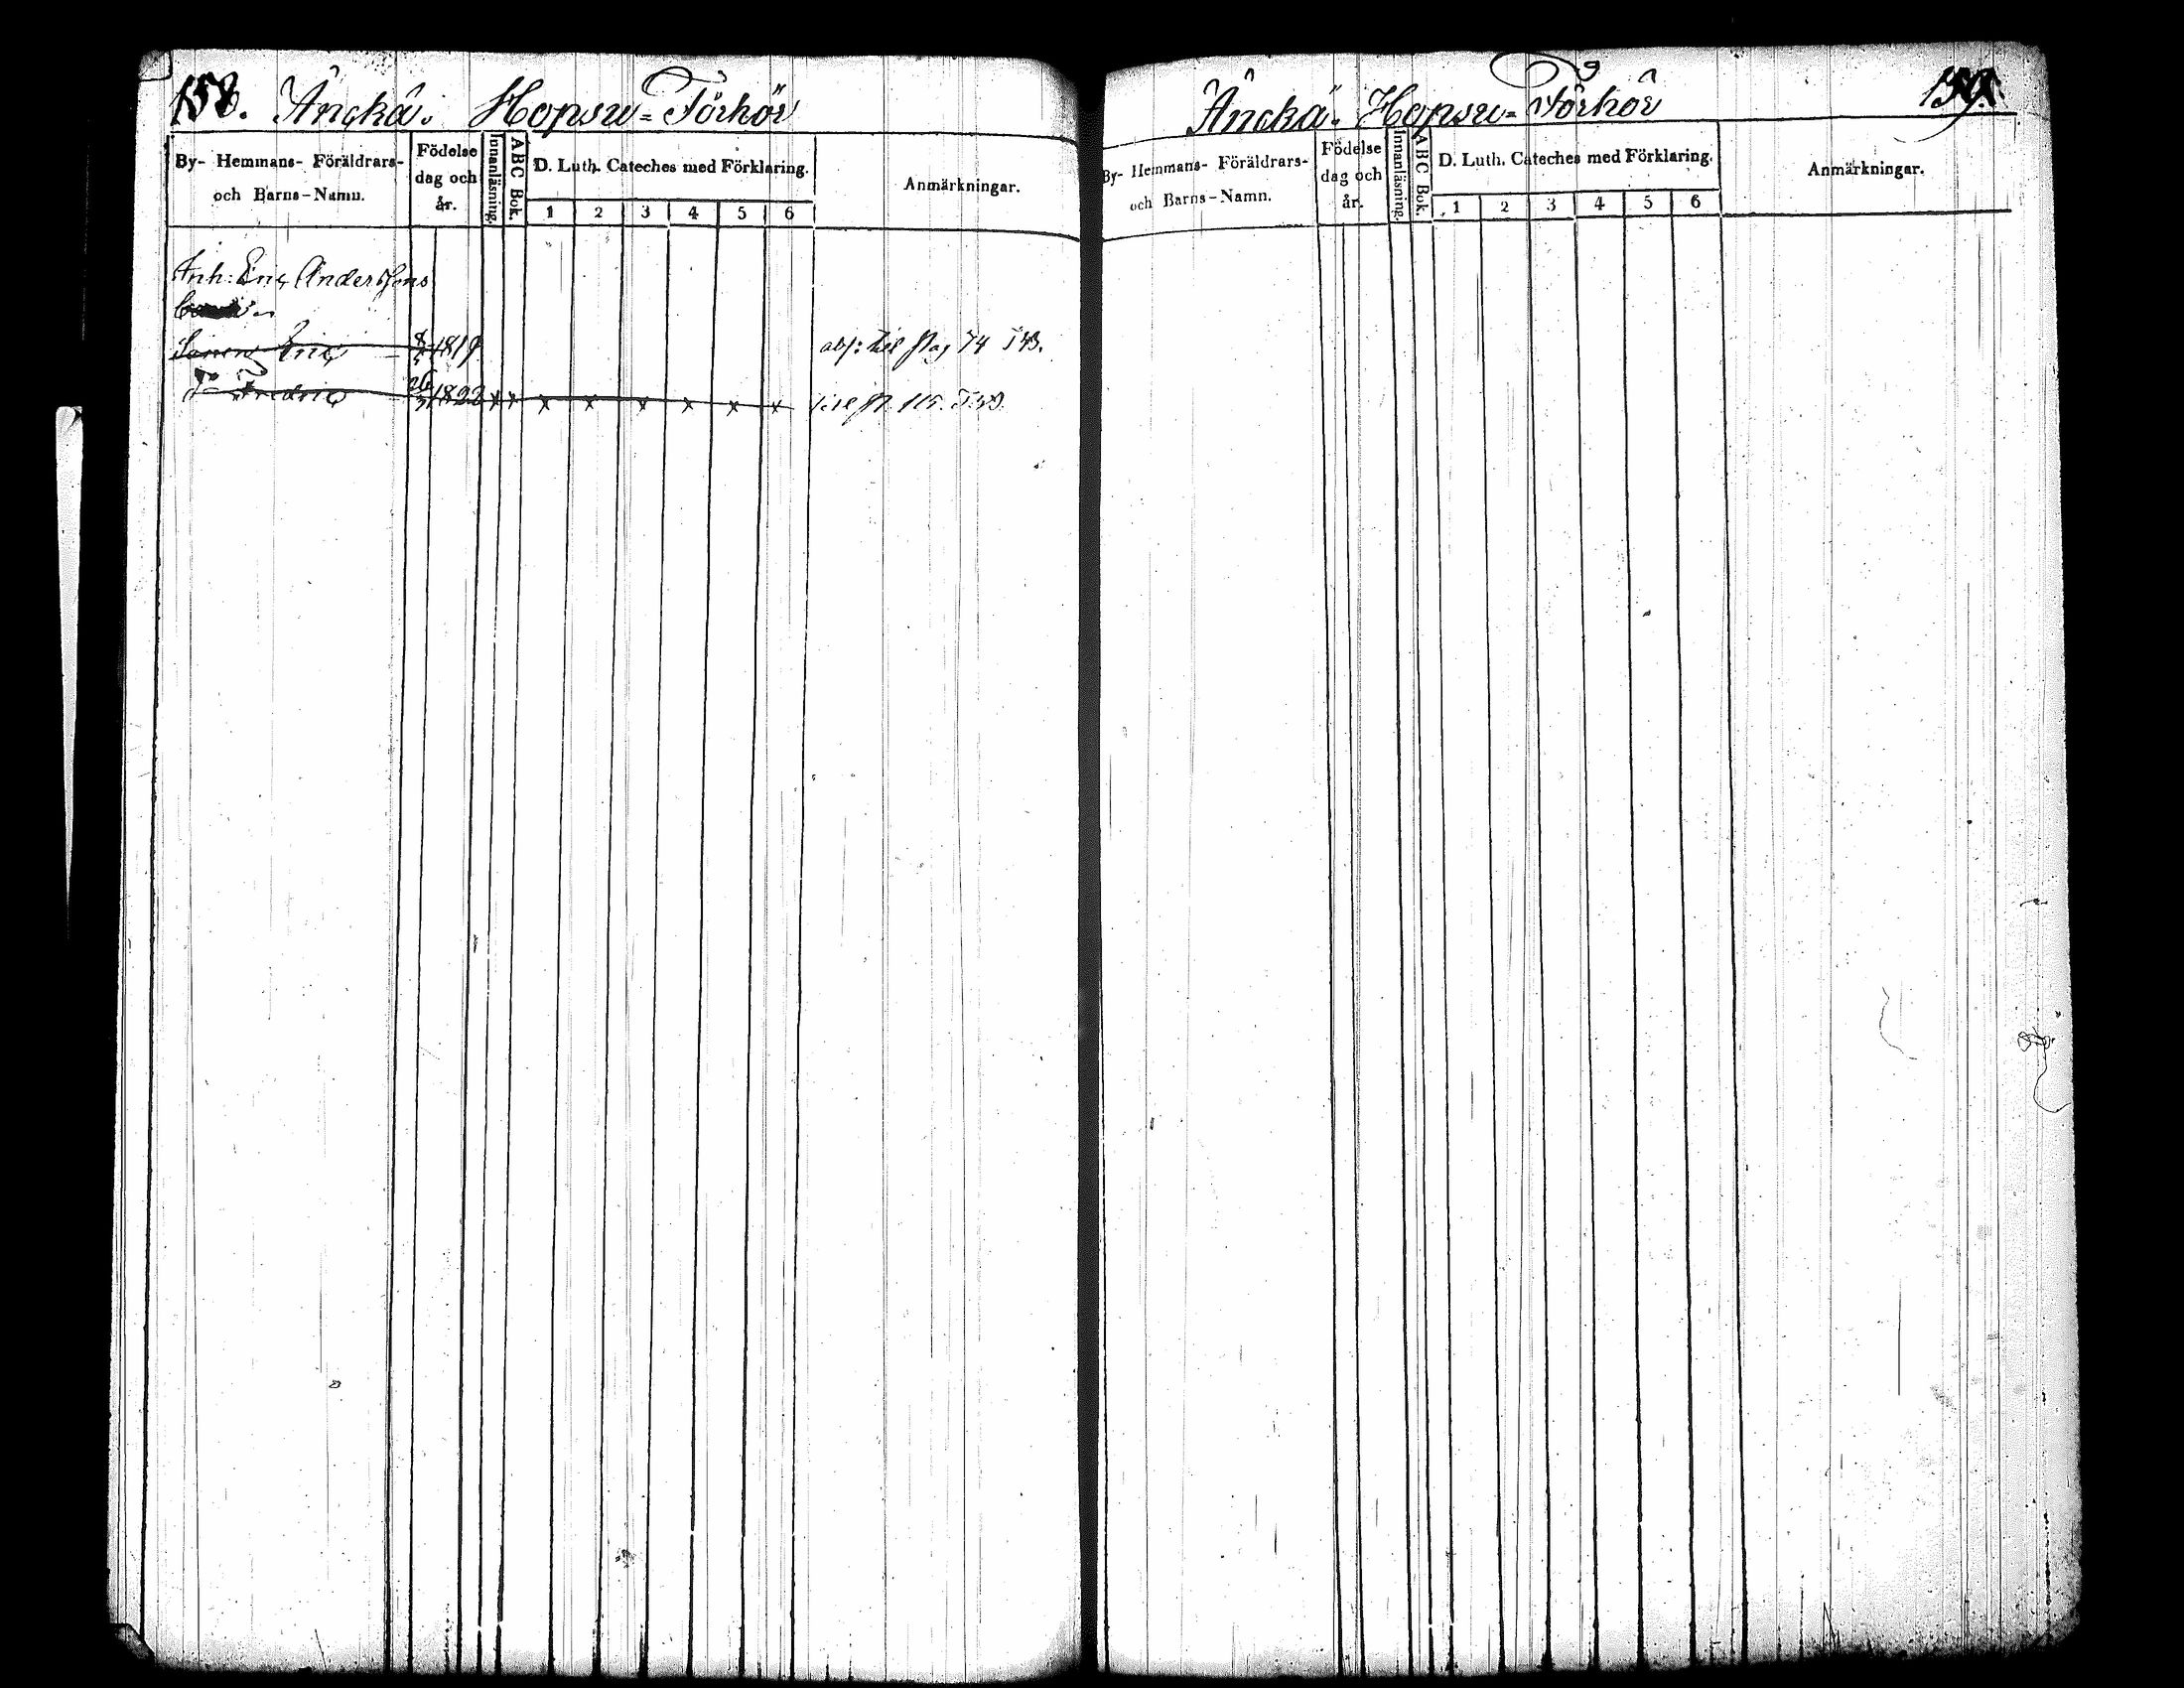 158. Ånckå. Hopsu=Förhör
By- Hemmans- Föräldrars-
och Barns-Namn.
Födelse
dag och
år.
Innanläsning.
ABC Bok.
D. Luth. Cateches med Förklaring.
1 2 3 4 5 6
Anmärkningar.
Inh: Eric Anderssons
Sonen Eric 1819 til pag 74
Fredric 26 1822 x x x x x x x x 115.
Ånckå. Hopsu=Förhör 159.
By- Hemmans- Föräldrars-
och Barns-Namn.
Födelse
dag och
år.
Innanläsning.
ABC Bok.
D. Luth. Cateches med Förklaring.
1 2 3 4 5 6
Anmärkningar.